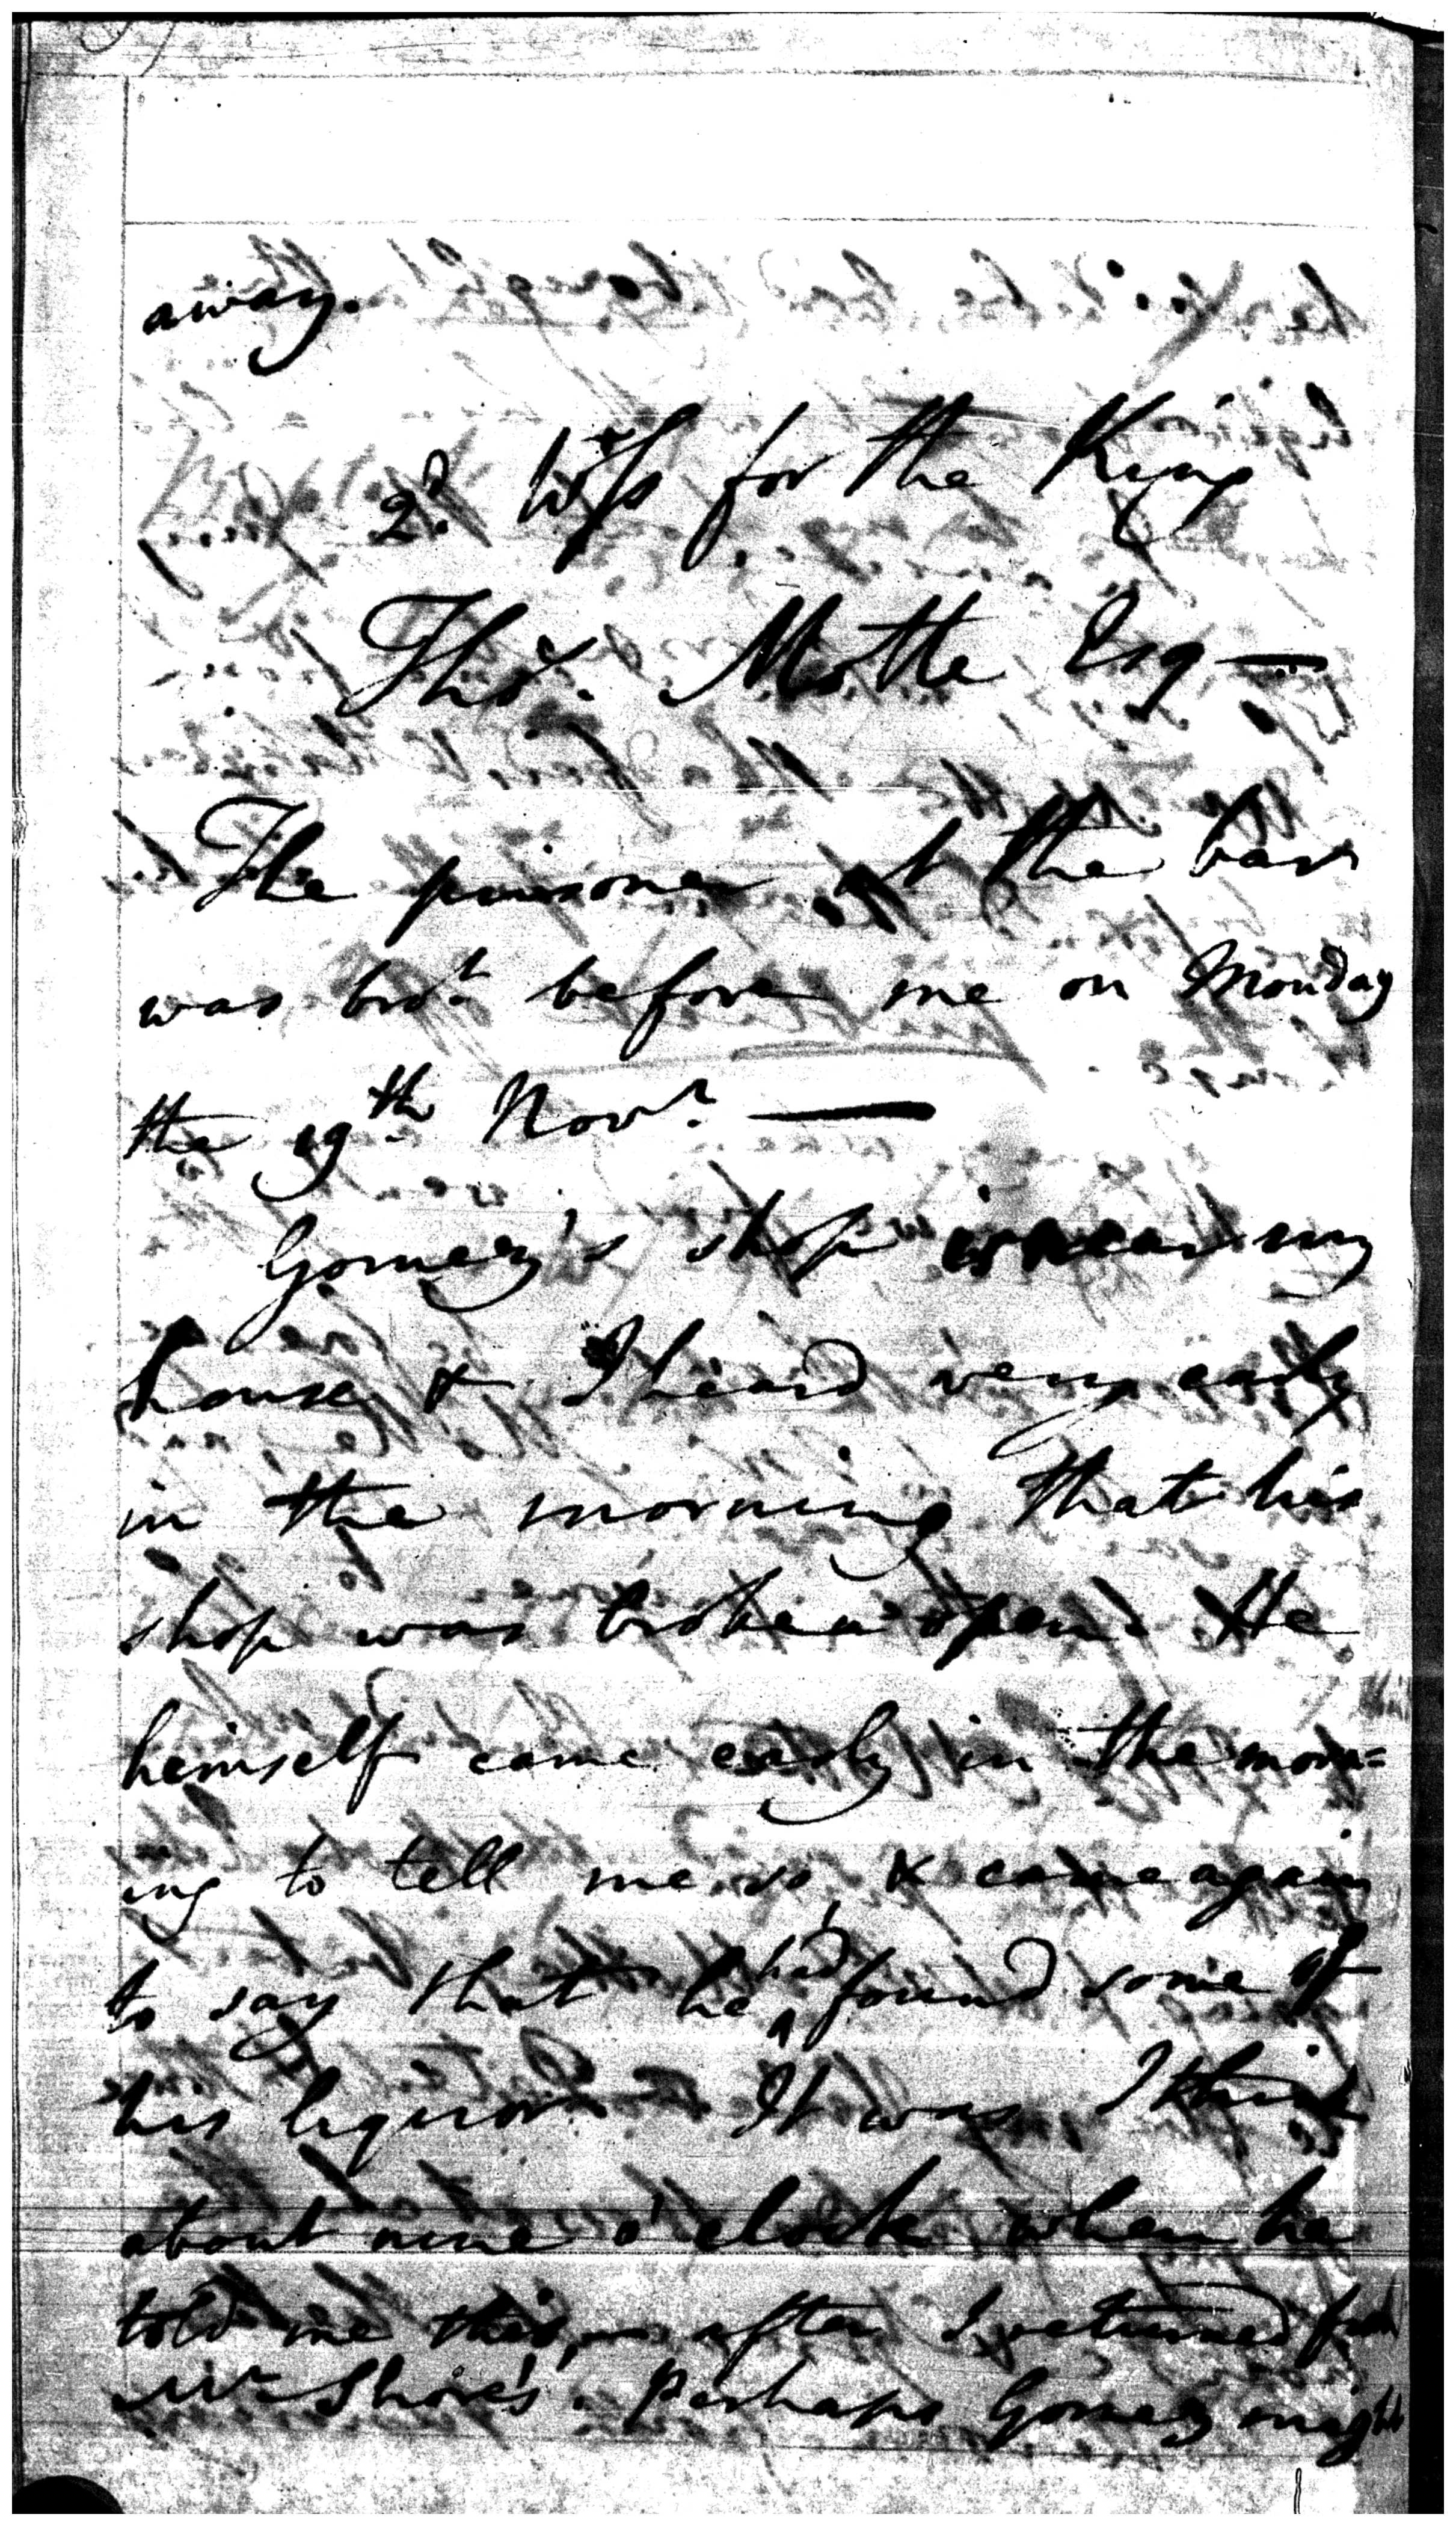 away.
2d. Wss for the King
Thos. Motte Esq —
The prisoner at the bar
was brot. before me on Monday
the 19th Novr. —
Gomez's shop is near my
house & I heard very early
in the morning that his
shop was broken open. He
himself came early in the morn=
ing to tell me so & came again
to say that he had found some of
his liquor. It was I think
about nine o'clock when he
told me this, after I returned from
Mr Shore's. Perhaps Gomez might